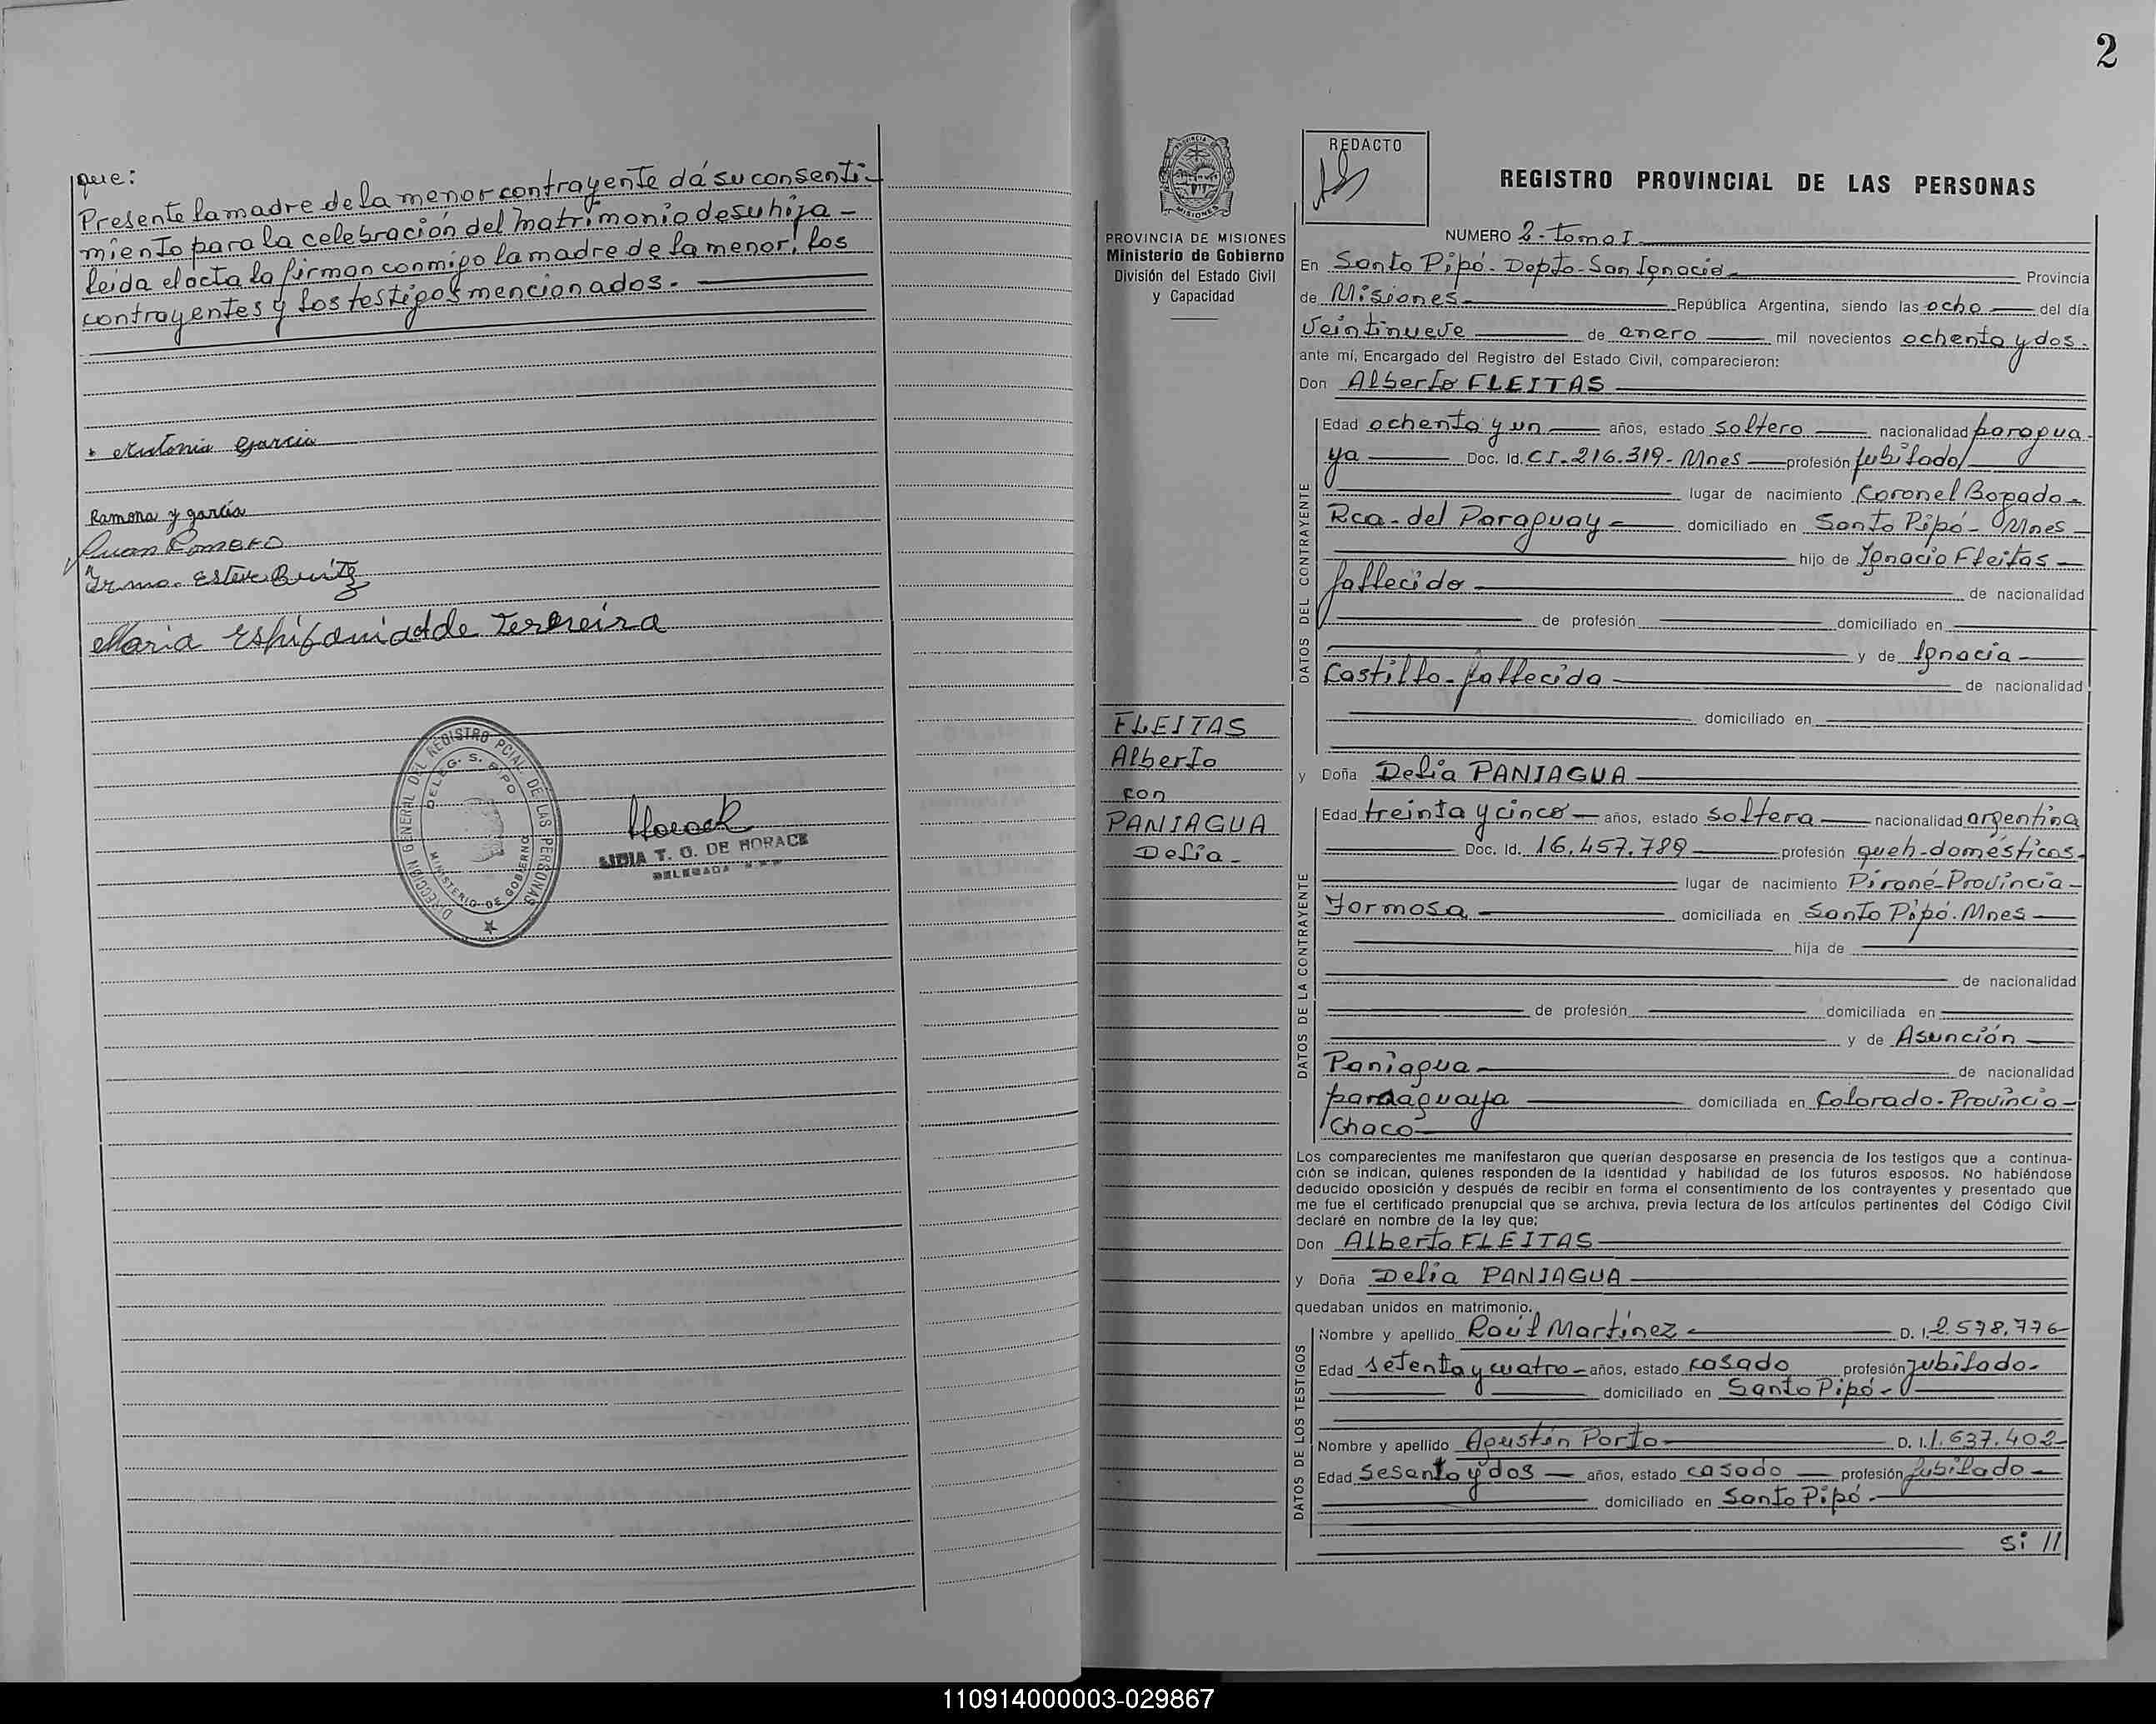 que:
Presente la madre de la menor contrayente dá su consenti-
miento para la celebración del matrimonio de su hija -
leída el acta la firman conmigo la madre de la menor, los
contrayentes y los testigos mencionados.
Antonia Garcia
Ramona y garcía
Juan Romero
Irma Esteve Benitez
Maria
DIRECCIÓN GENERAL DEL REGISTRO PCIAL. DE LAS PERSONAS
DELEG. S. PIPO
MINISTERIO DE GOBIERNO
LIDIA T. O. DE HORACK
DELEGADA
2
PROVINCIA DE MISIONES
Ministerio de Gobierno
División del Estado Civil
y Capacidad
FLEITAS
Alberto
con
PANIAGUA
Delia-
REDACTO
REGISTRO PROVINCIAL DE LAS PERSONAS
NUMERO 2-Tomo I
En Santo Pipó- Depto- San Ignacio Provincia
de Misiones República Argentina, siendo las ocho del día
veintinueve de enero mil novecientos ochenta y dos.
ante mí, Encargado del Registro del Estado Civil, comparecieron:
Don Alberto FLEITAS
DATOS DEL CONTRAYENTE
Edad ochenta y un años, estado soltero nacionalidad paragua-
ya Doc. Id. CI-216.319-Mnes profesión jubilado
lugar de nacimiento Coronel Bogado-
Rca-del Paraguay domiciliado en Santo Pipó- Mnes
hijo de Ignacio Fleitas
fallecido de nacionalidad
de profesión domiciliado en
y de Ignacia
Castillo-fallecida de nacionalidad
domiciliado en
y Doña Delia PANIAGUA
DATOS DE LA CONTRAYENTE
Edad treinta y cinco años, estado soltera nacionalidad argentina
Doc. Id. 16.457.789 profesión queh-domésticos.
lugar de nacimiento Pirané-Provincia
Formosa domiciliada en Santo Pipó. Mnes
hija de
de nacionalidad
de profesión domiciliada en
y de Asunción
Paniagua de nacionalidad
paraguaya domiciliada en Colorado-Provincia
Chaco
Los comparecientes me manifestaron que querían desposarse en presencia de los testigos que a continua-
ción se indican, quienes responden de la identidad y habilidad de los futuros esposos. No habiéndose
deducido oposición y después de recibir en forma el consentimiento de los contrayentes y presentado que
me fue el certificado prenupcial que se archiva, previa lectura de los artículos pertinentes del Código Civil
declaré en nombre de la ley que:
Don Alberto FLEITAS
y Doña Delia PANIAGUA
quedaban unidos en matrimonio.
DATOS DE LOS TESTIGOS
Nombre y apellido Raúl Martinez D. I. 2.578.776
Edad setenta y cuatro años, estado casado profesión jubilado-
domiciliado en Santo Pipó-
Nombre y apellido Agustín Porto D. I. 1.637.402
Edad sesenta y dos años, estado casado profesión jubilado
domiciliado en Santo Pipó.
si //
110914000003-029867